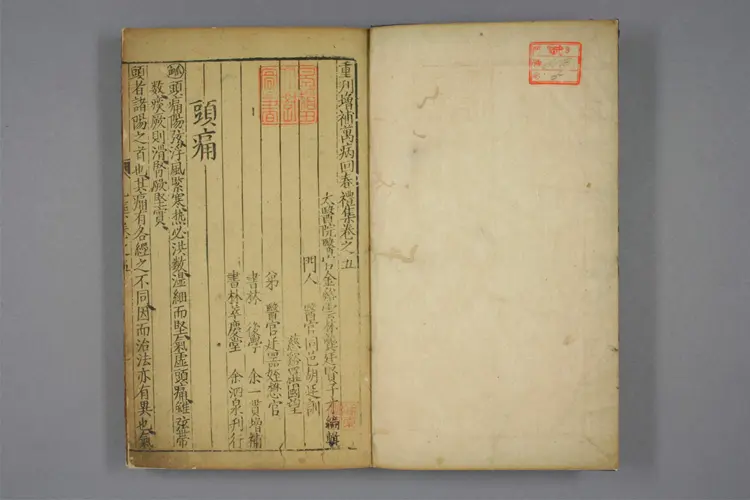 重刊增補萬病回春禮集卷之五
太醫院醫官金谿雲林龔廷賢子才編輯
門人 醫官同邑胡廷訓
慈谿羅國望
弟 醫官廷器姪懋官
書林 後學 余一貫增補
書林萃慶堂 余泗泉刊行
頭痛
脉頭痛陽弦浮風緊寒熱必洪數濕細而堅氣虛頭痛雖弦帶
數痰厥則滑腎厥堅實
頭者諸陽之首也其痛有各經之不同因而治法亦有異也氣